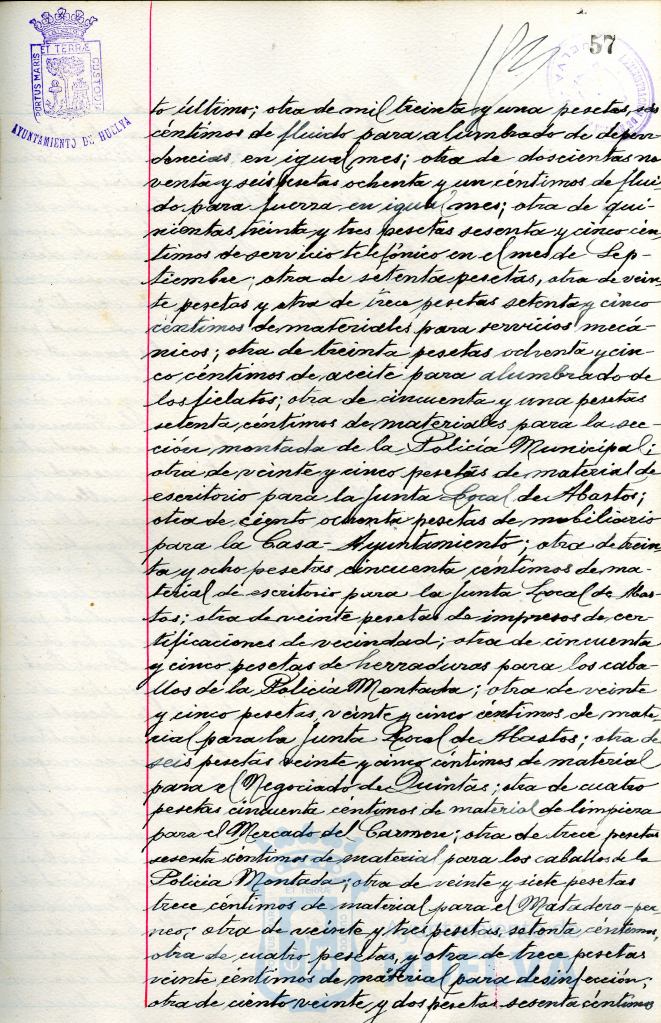 57
PORTUS MARIS ET TERRÆ CUSTODIA
AYUNTAMIENTO DE HUELVA
to último; otra de mil treinta y una pesetas, seis
céntimos de fluido para alumbrado de depen-
dencias en igual mes; otra de doscientas no
venta y seis pesetas ochenta y un céntimos de flui
do para fuerza en igual mes; otra de qui-
nientas treinta y tres pesetas sesenta y cinco cén
timos de servicio telefónico en el mes de Sep-
tiembre; otra de setenta pesetas, otra de vein
te pesetas y otra de trece pesetas setenta y cinco
céntimos de materiales para servicios mecá-
nicos; otra de treinta pesetas ochenta y cin-
co céntimos de aceite para alumbrado de
los fielatos; otra de cincuenta y una pesetas
setenta céntimos de materiales para la sec-
ción montada de la Policía Municipal;
otra de veinte y cinco pesetas de material de
escritorio para la Junta Local de Abastos;
otra de ciento ochenta pesetas de mobiliario
para la Casa-Ayuntamiento; otra de trein
ta y ocho pesetas cincuenta céntimos de ma-
terial de escritorio para la Junta Local de Abas-
tos; otra de veinte pesetas de impresos de cer-
tificaciones de vecindad; otra de cincuenta
y cinco pesetas de herraduras para los caba-
llos de la Policía Montada; otra de veinte
y cinco pesetas, veinte y cinco céntimos de mate
rial para la Junta Local de Abastos; otra de
seis pesetas veinte y cinco céntimos de material
para el Negociado de Quintas; otra de cuatro
pesetas cincuenta céntimos de material de limpieza
para el Mercado del Carmen; otra de trece pesetas
sesenta céntimos de material para los caballos de la
Policía Montada; otra de veinte y siete pesetas
trece céntimos de material para el Matadero-pe-
neo; otra de veinte y tres pesetas, setenta céntimos,
otra de cuatro pesetas, y otra de trece pesetas
veinte céntimos de material para desinfección;
otra de ciento veinte y dos pesetas sesenta céntimos